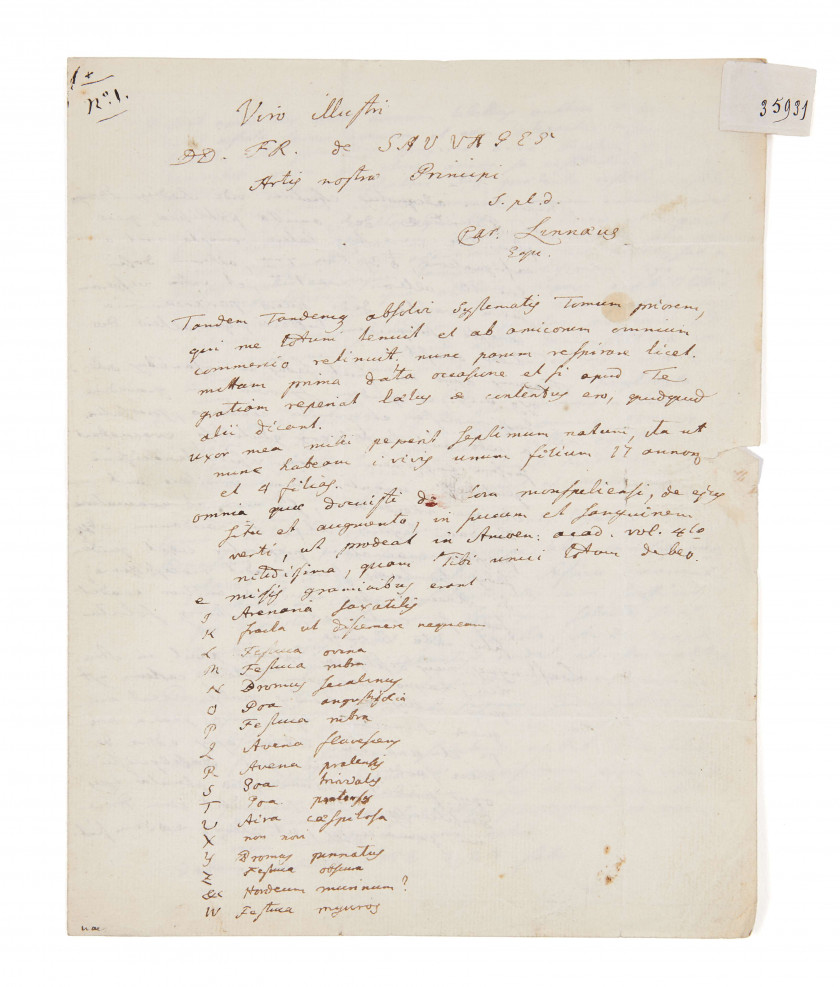 No. 1.
35931
Viro illustri
DD. FR. de SAUVAGES
Artis nostræ Principi
S. pl. d.
Car. Linnæus
Equ.
Tandem tandemq absolvi Systematis Tomum priorem,
qui me totum tenuit et ab amicorum omnium
commercio retinuit. nunc parum respirare licet.
mittam prima data occasione et si apud Te
gratiam reperiat lætus & contentus ero, quidquid
alii dicant.
Uxor mea mihi peperit septimum natum, ita ut
nunc habeam i vivis unum filium 17 annor
et 4 filias.
omnia quæ docuisti de flora monspeliensi, de ejus
situ et augmento, in succum et sanguinem
verti, ut prodeat in Amoen: acad. vol. 4to
nitidissima, quam Tibi unici totum debeo.
e missis graminibus erant
I Arenaria saxatilis
K fracta ut discernere nequeam
L Festuca ovina
M Festuca rubra
N Bromus secalinus
O Poa angustifolia
P Festuca rubra
Q Avena flavescens
R Avena pratensis
S Poa trivialis
T Poa pratensis
U Aira cæspitosa
X non novi
Y Bromus pinnatus
Z Festuca obscura
& Hordeum murinum?
W Festuca myuros